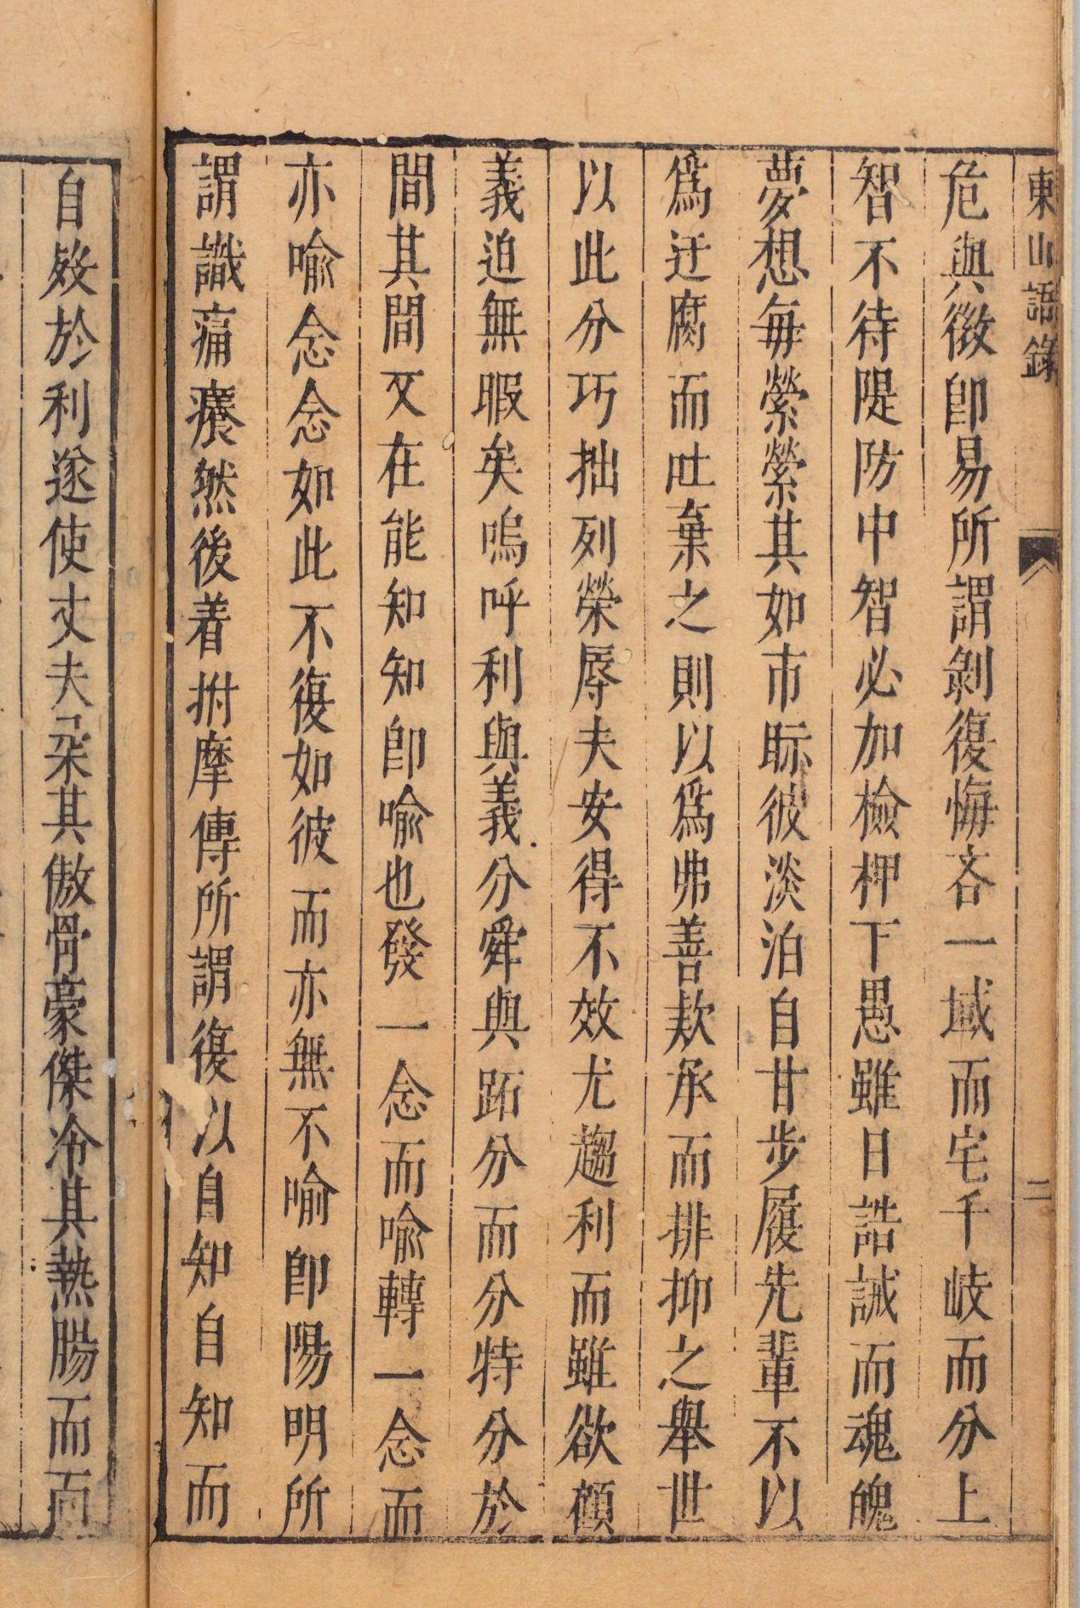 東山語錄
二
危與微卽易所謂剝復悔吝一域而宅千岐而分上
智不待隄防中智必加檢柙下愚雖日誥誡而魂魄
夢想每縈縈其如市眎彼淡泊自甘步履先輩不以
爲迂腐而吐棄之則以爲弗善欵承而排抑之舉世
以此分巧拙列榮辱夫安得不效尤趨利而雖欲顧
義迫無暇矣嗚呼利與義分舜與跖分而分特分於
間其間又在能知知卽喻也發一念而喻轉一念而
亦喻念念如此不復如彼而亦無不喻卽陽明所
謂識痛癢然後着拊摩傳所謂復以自知自知而
自效於利遂使丈夫朶其傲骨豪傑冷其熱腸而而